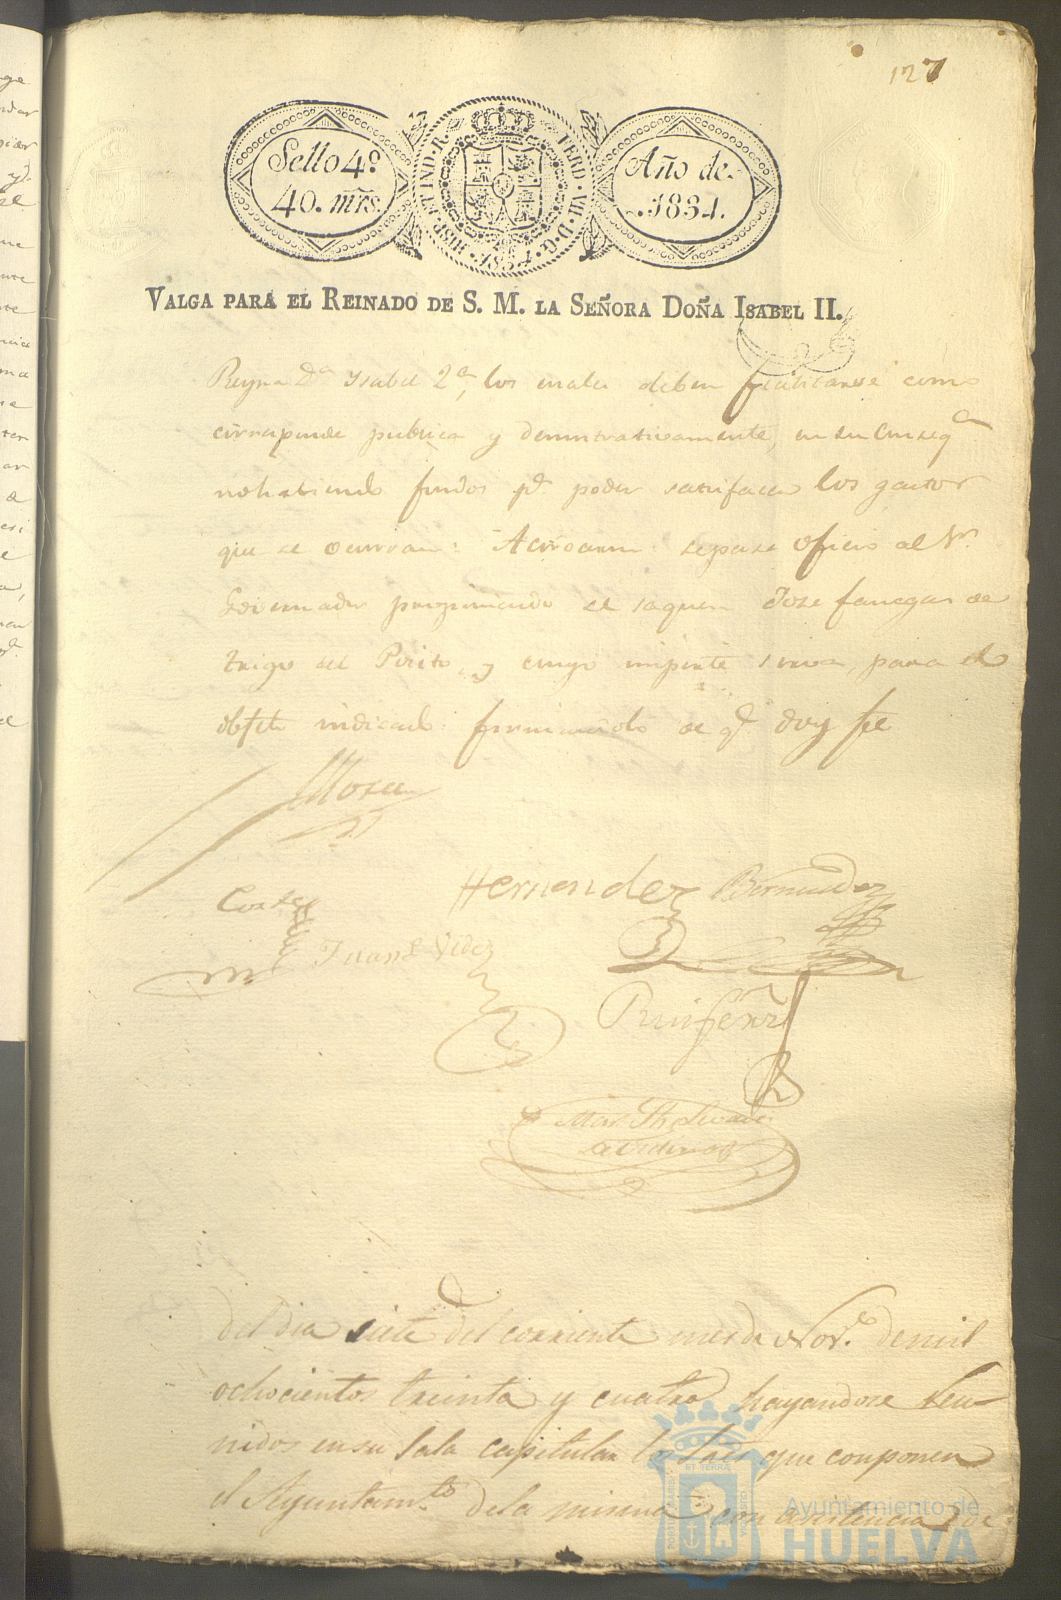 127
Sello 4º.
40. mrs.
HISP. ET IND. R.
FERD. VII. D. G.
1834.
Año de
1834.
VALGA PARA EL REINADO DE S. M. LA SEÑORA DOÑA ISABEL II.
Reyna Dª Ysabel 2ª, los cuales deben como
corresponde publica y demostrativamente, en su conseqª
no habiendo fondos pª poder satisfacer los gastos
que se ocurran: Acordaron se pase oficio al Sr.
Governador se saquen fanegas de
trigo del Posito, y cuyo importe sirva para el
objeto indicado firmandolo de qe doy fe
Mora
Hernendez Bermudez
Ruifernz
del dia siete del corriente mes de Nove. de mil
ochocientos treinta y cuatro hayandose Reu-
nidos en su Sala capitular los Sres que conponen
el Ayuntamto. de la misma con asistencia de
Ayuntamiento de
HUELVA